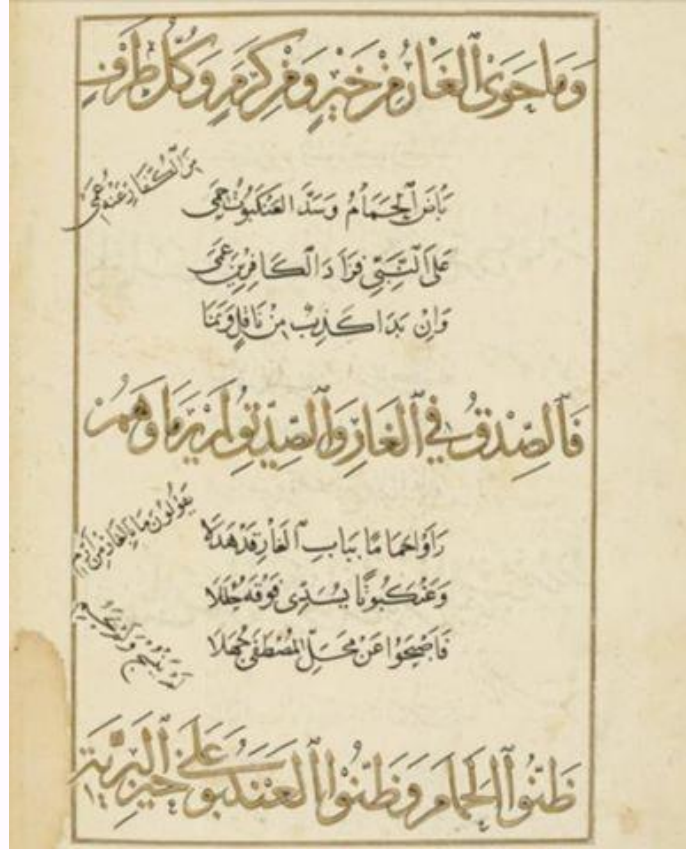 وَمَا حَوَى ٱلْغَارُ مِنْ خَيْرٍ وَمِنْ كَرَمٍ وَكُلُّ طَرْفٍ
مِنَ ٱلْكُفَّارِ عَنْهُ عَمِى
بَاضَ ٱلْحَمَامُ وَسَدَّا العَنْكَبُوتُ حِمَى
عَلَى ٱلنَّبِيِّ فَزَادَ ٱلْكَافِرِينَ عَمَى
وَاِنْ بَدَا كَذِبٌ مِنْ نَاقِلٍ وَنَمَا
فَٱلصِّدْقُ فِي ٱلْغَارِ وَٱلصِّدِّيقُ لَمْ يَرِمَا وَهُمْ
يَقُولُونَ مَا بِالْغَارِ مِنْ اَرِمِ
رَاَوْا حَمَامًا بِبَابِ ٱلْغَارِ قَدْ هَدَلَا
وَعَنْكَبُوتًا يُسَدِّى فَوْقَهُ حُلَلَا
فَاَصْبَحُوا عَنْ مَحَلِّ الْمُصْطَفَى جُهَلَا
ظَنُّوا ٱلْحَمَامَ وَظَنُّوا ٱلْعَنْكَبُوتَ عَلَى خَيْرِ ٱلْبَرِيَّةِ